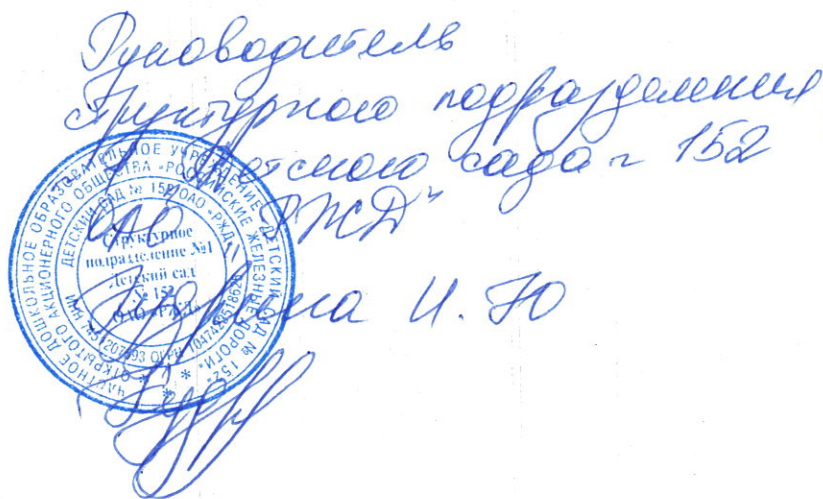 Руководитель
структурного подразделения
Детского сада № 152
ОАО "РЖД"
И. Ю
ЧАСТНОЕ ДОШКОЛЬНОЕ ОБРАЗОВАТЕЛЬНОЕ УЧРЕЖДЕНИЕ "ДЕТСКИЙ САД № 152"
ОТКРЫТОГО АКЦИОНЕРНОГО ОБЩЕСТВА "РОССИЙСКИЕ ЖЕЛЕЗНЫЕ ДОРОГИ"
ДЕТСКИЙ САД № 152 ОАО «РЖД»
ИНН ОГРН
Структурное
подразделение №1
Детский сад
№ 152
ОАО «РЖД»